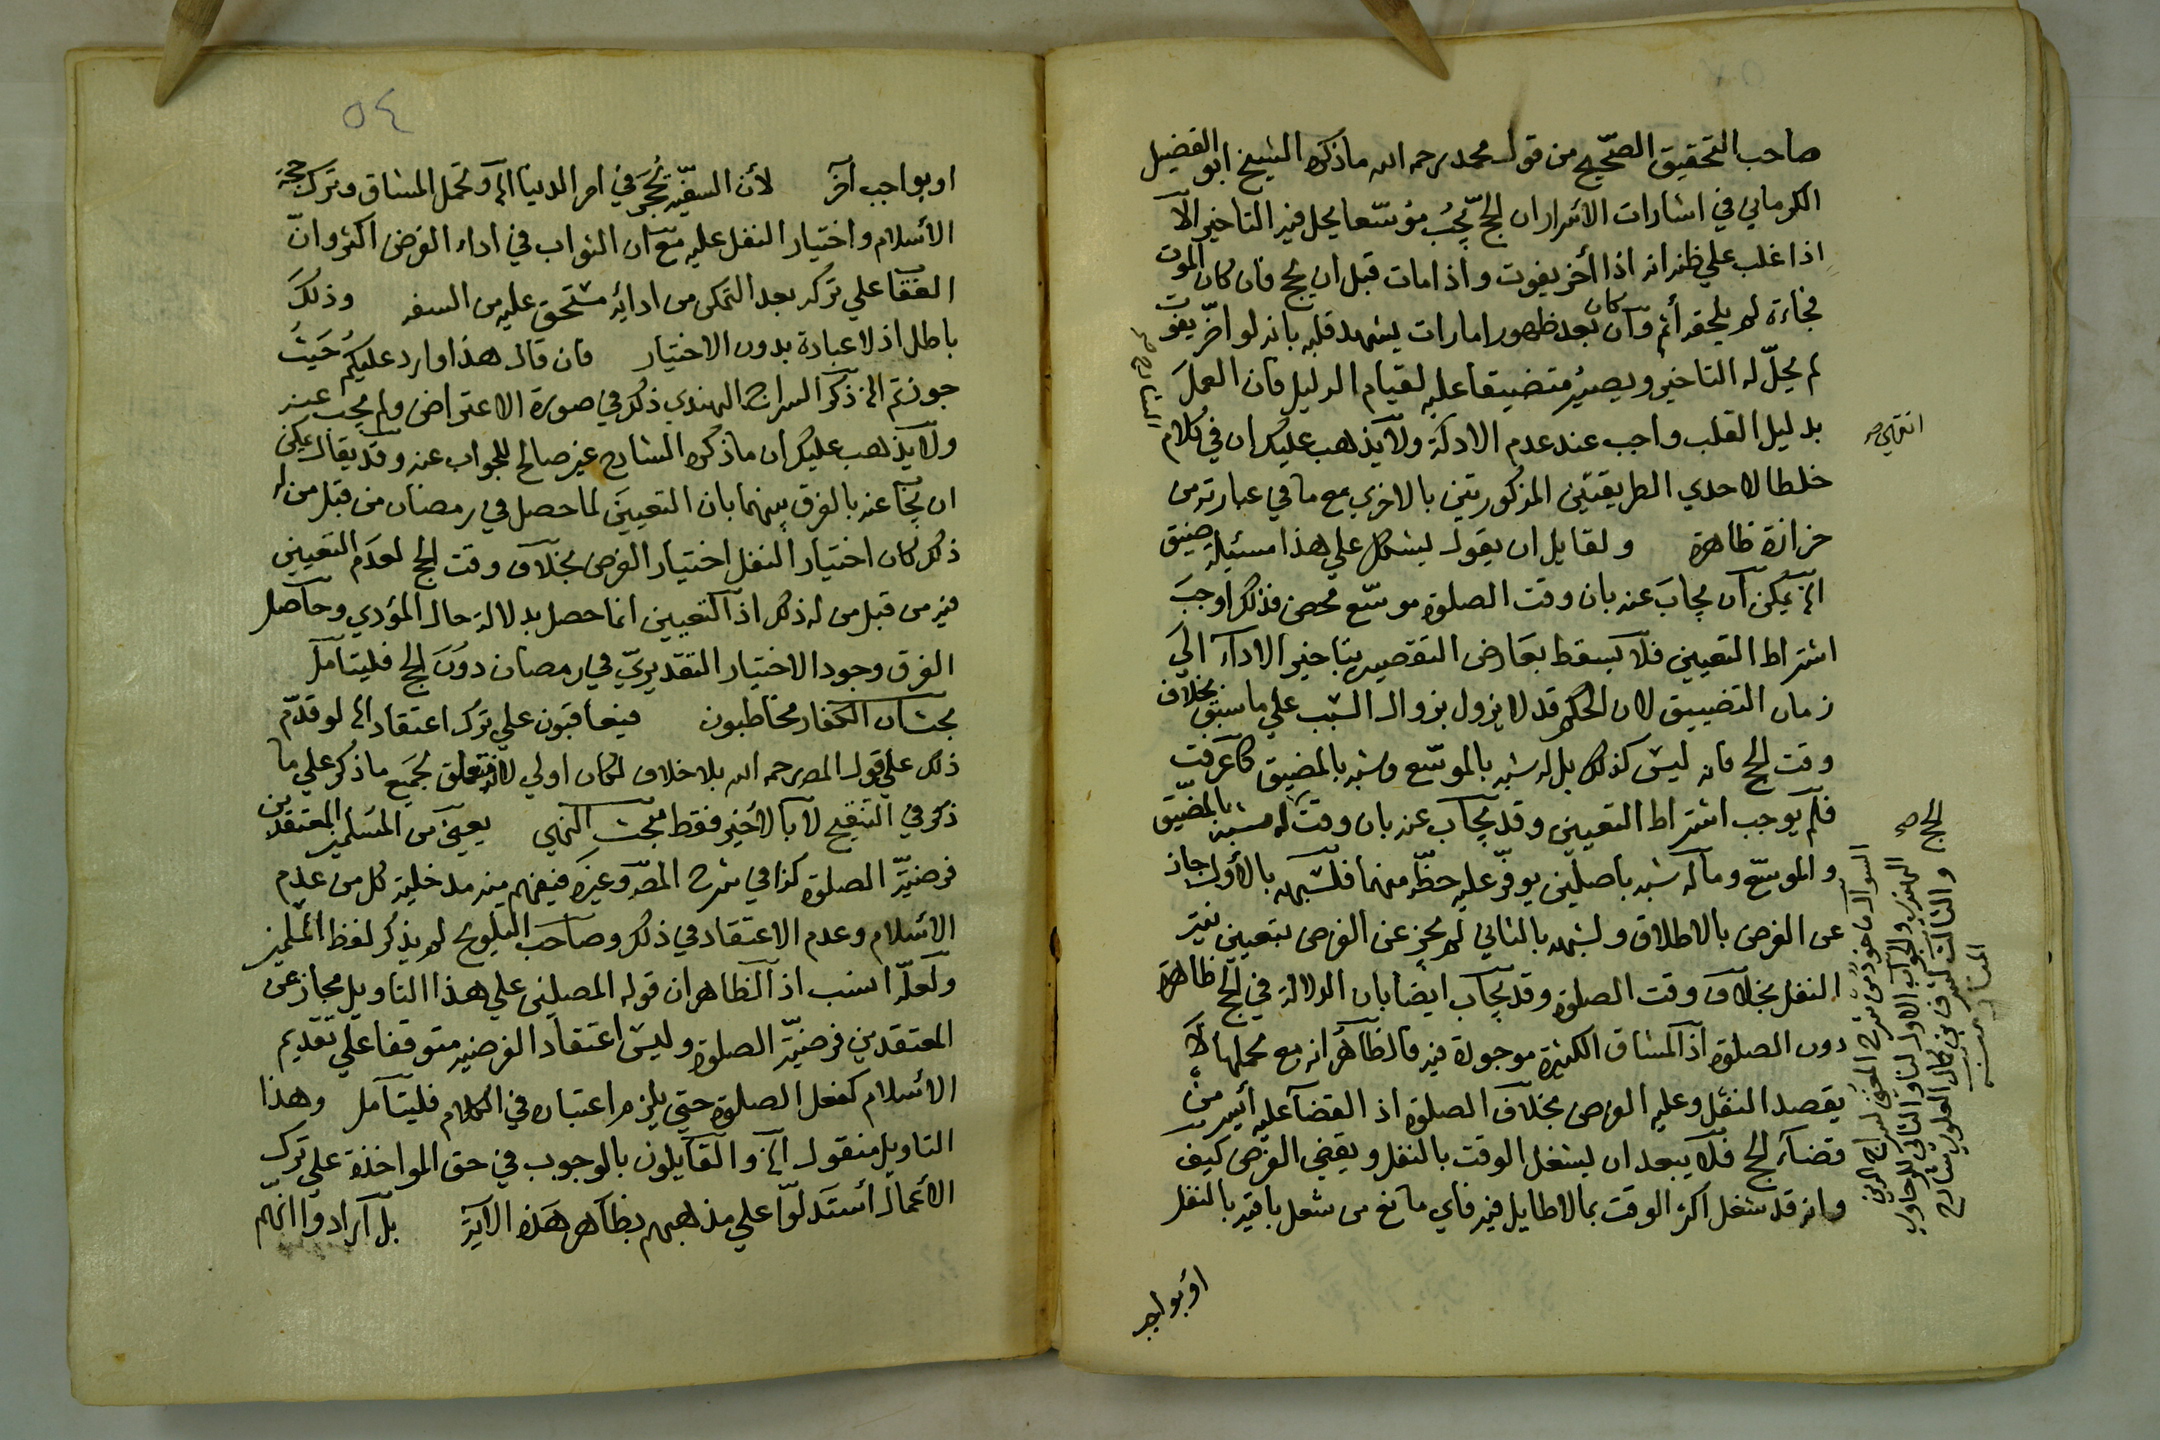 صاحب التحقيق الصحيح من قول محمد رحمه الله ما ذكره الشيخ ابو الفضيل
الكرماني في اشارات الاسرار ان الحج يجب موسعا يحل فيه التاخير الا
اذا غلب علي ظنه انه اذا أخر يفوت واذا مات قبل ان يحج فان كان الموت
فجاءة لم يلحقه أثم وان كان بعد ظهور امارات يشهد قلبه بانه لو اخر يفوت
لم يحل له التاخير ويصير متضيقا عليه لقيام الدليل فان العمل
بدليل القلب واجب عند عدم الادلة ولا يذهب عليك ان في كلام
الشارح
انتهي
خلطا لاحدي الطريقتين المذكورتين بالاخري مع ما في عبارته من
حزازة ظاهرة ولقايل ان يقول يشكل علي هذا مسئيلة ضيق
الخ يمكن ان يجاب عنه بان وقت الصلوة موسع محض فذلك اوجب
اشتراط التعيين فلا يسقط بعارض التقصير بتاخير الاداء الي
زمان التضييق لان الحكم قد لا يزول بزوال السبب علي ما سبق بخلاف
وقت الحج فانه ليس كذلك بل له شبه بالموسع وشبه بالمضيق كما عرفت
فلم يوجب اشتراط التعيين وقد يجاب عنه بان وقت له شبه بالمضيق
الحج
والموسع وما له شبه باصلين يوفر عليه حظه منهما فلشبهه بالأول جاز
عن الفرض بالاطلاق ولشبهه بالثاني لم يجز عن الفرض بتعيين نية
النفل بخلاف وقت الصلوة وقد يجاب ايضا بان الدلالة في الحج ظاهرة
دون الصلوة اذ المشاق الكثيرة موجودة فيه فالظاهر انه مع تحملها لا
يقصد النفل وعليه الفرض بخلاف الصلوة اذ القضا عليه أيسر من
قضاء الحج فلا يبعد ان يشغل الوقت بالنفل ويقضي الفرض كيف
وانه قد شغل اكثر الوقت بما لا طايل فيه فاي مانع من شغل باقيه بالنفل
السوال ماخوذ من شرح المغني لسراج الدين
الهندي والجواب الاول لنا والثاني للحاوي
والثالث لشرف بن كمال العلوي شارح
المنار منه
او بواجب
٥٤
او بواجب آخر لأن السفيه يحجر في امر الدنيا الخ وتحمل المشاق وترك حجة
الأسلام واختيار النفل عليه مع ان الثواب في اداء الفرض اكثر وان
العقا علي تركه بعد التمكن من ادائه مستحق عليه من السفه وذلك
باطل اذ لا عبادة بدون الاختيار فان قال هذا وارد عليكم حيث
جوزتم الخ ذكر السراج الهندي ذلك في صورة الاعتراض ولم يجب عنه
ولا يذهب عليك ان ما ذكره الشارح غير صالح للجواب عنه وقد يقال يمكن
ان يجا عنه بالفرق بينهما بان التعيين لما حصل في رمضان من قبل من له
ذلك كان اختيار النفل اختيار الفرض بخلاف وقت الحج لعدم التعيين
فيه من قبل من له ذلك اذ التعيين انما حصل بدلالة حال المؤدي وحاصل
الفرق وجود الاختيار التقديري في رمضان دون الحج فليتامل
بحث ان الكفار مخاطبون فيعاقبون علي ترك اعتقاد الخ لو قدم
ذلك علي قول المصر رحمه الله بلا خلاف لكان اولي لانه متعلق بجميع ما ذكر علي ما
ذكر في التنقيح لا بالأخير فقط بحث النهي يعني من المسلمين المعتقدين
فرضية الصلوة كذا في شرح المصر وغيره فيفهم منه مدخلية كل من عدم
الاسلام وعدم الاعتقاد في ذلك وصاحب التلويح لم يذكر لفظ المسلمين
ولعله انسب اذ الظاهر ان قوله المصلين علي هذا التاويل مجاز عن
المعتقدين فرضية الصلوة وليس اعتقاد الفرضية متوقفا علي تقديم
الاسلام كفعل الصلوة حتي يلزم اعتباره في الكلام فليتامل وهذا
التاويل منقول الخ والقايلون بالوجوب في حق المواخذة علي ترك
الأعمال أستدلوا علي مذهبهم بظاهر هذه الآية بل ارادوا انهم